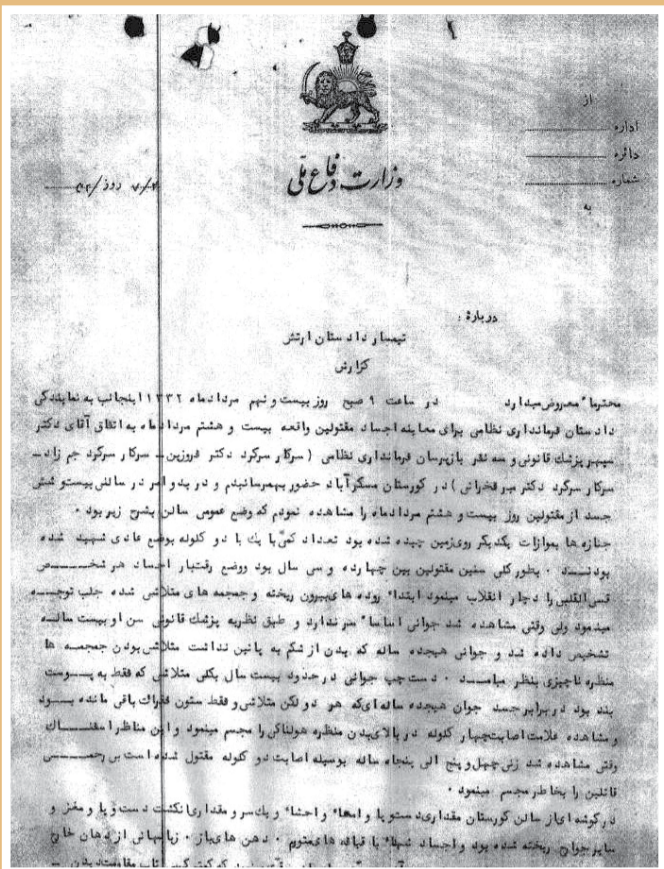 از
اداره
دائره
شماره
به
وزارت دفاع ملی
درباره :
تیمسار دادستان ارتش
گزارش
محترما" معروض میدارد در ساعت ۹ صبح روز بیست و نهم مردادماه ۱۳۳۲ اینجانب به نمایندگی
دادستان فرمانداری نظامی برای معاینه اجساد مقتولین واقعه بیست و هشتم مردادماه به اتفاق آقای دکتر
سپهر پزشک قانونی و سه نفر بازپرسان فرمانداری نظامی ( سرکار سرگرد دکتر فروزین ـ سرکار سرگرد جم زاد ـ
سرکار سرگرد دکتر میرفخرائی ) در گورستان مسگرآباد حضور بهمرسانیدم و در بدو امر در سالنی بیست و شش
جسد از مقتولین روز بیست و هشتم مردادماه را مشاهده نمودم که وضع عمومی سالن بشرح زیر بود .
جنازه ها بموازات یکدیگر روی زمین چیده شده بود تعداد کمی با یک یا دو گلوله بوضع عادی شهید شده
بودنـد . بطور کلی سنین مقتولین بین چهارده و سی سال بود ووضع رقتبار اجساد هر شخـص
قسی القلبی را دچار انقلاب مینمود ابتداء روده های بیرون ریخته و جمجمه های متلاشی شده جلب توجـه
مینمود ولی وقتی مشاهده شد جوانی اساسا" سر ندارد و طبق نظریه پزشک قانونی سن او بیست سالـه
تشخیص داده شد و جوانی هیجده ساله که بدن از شکم به پائین نداشت متلاشی بودن جمجمـه ها
منظره ناچیزی بنظر میامـد . دست چپ جوانی در حدود بیست سال بکلی متلاشی که فقط به پـوست
بند بود در برابر جسد جوان هیجده ساله ای که هر دو لگن متلاشی و فقط ستون فقرات باقی مانده بـود
و مشاهده علامت اصابت چهار گلوله در بالای بدن منظره هولناکی را مجسم مینمود و این مناظر اسفنـاک
وقتی مشاهده شد زنی چهل و پنج الی پنجاه ساله بوسیله اصابت دو گلوله مقتول شده است بی رحمـی
قاتلین را بخاطر مجسم مینمود .
در گوشه ای از سالن گورستان مقداری دست و پا و امعاء و احشاء و یک سر و مقداری انگشت دست و پا و مغز و
سایر جوارح ریخته شده بود و اجساد شهداء با قیافه های متورم . دهن های باز . زبانهائی از دهان خارج